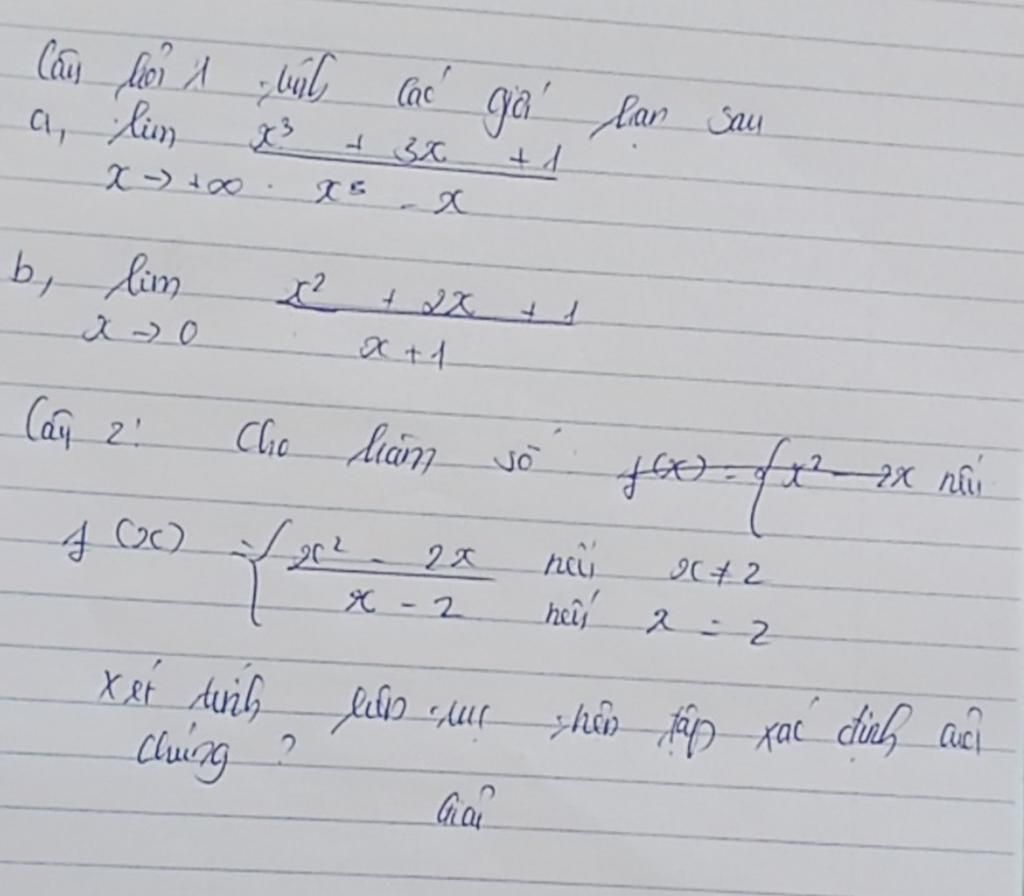 Câu hỏi 1 tính các giới hạn sau
a, lim x³ + 3x + 1
x → +∞ x⁵ - x
b, lim x² + 2x + 1
x → 0 x + 1
Câu 2: Cho hàm số f(x) = { x² - 2x nếu
f(x) = { x² - 2x nếu x ≠ 2
x - 2 nếu x = 2
Xét tính liên tục trên tập xác định của
chúng ?
Giải